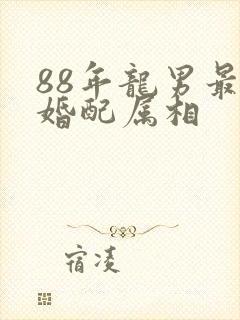 88年龍男最
婚配属相
宿凌